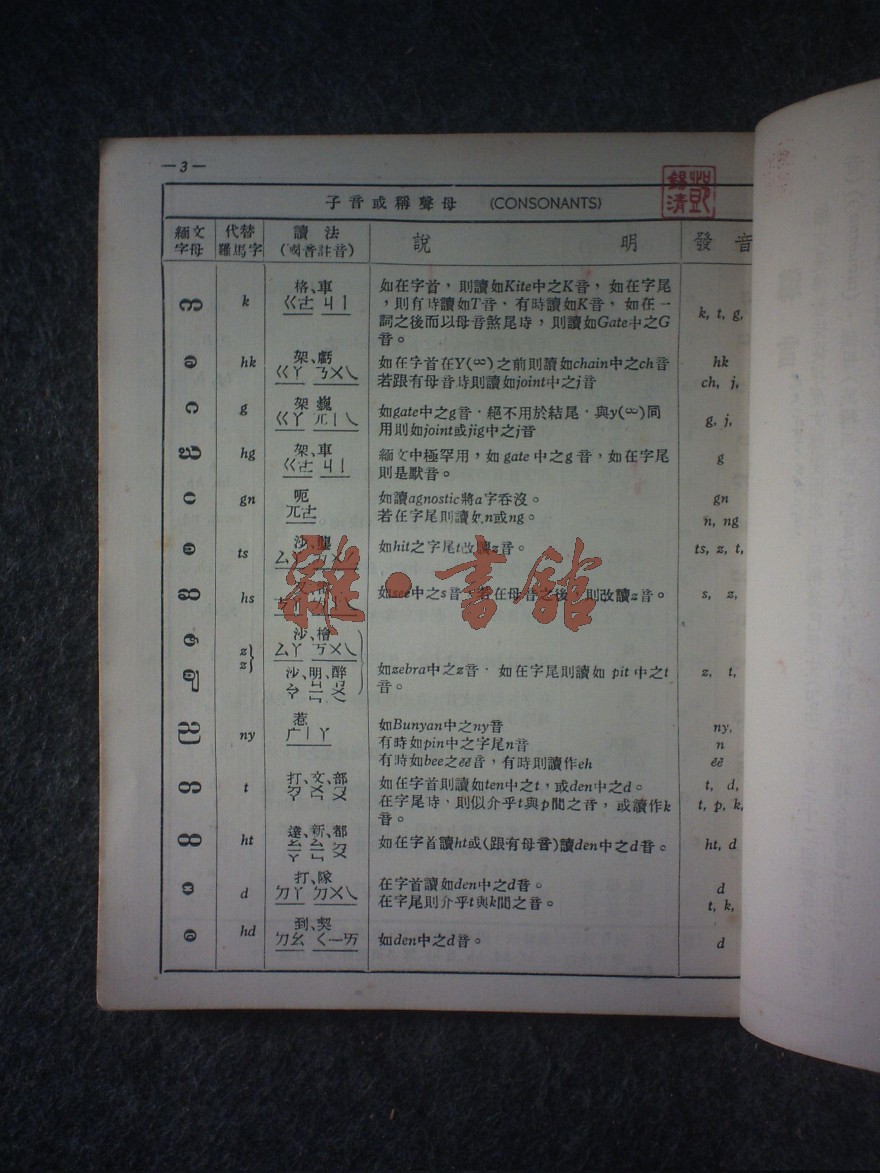 —3—
子音或稱聲母 (CONSONANTS)
緬文字母
代替羅馬字
讀法
(國音註音)
說 明
發 音
k
格、車
ㄍㄜ ㄐㄧ
如在字首，則讀如Kite中之K音，如在字尾
，則有時讀如T音，有時讀如K音，如在一
詞之後而以母音煞尾時，則讀如Gate中之G
音。
k, t, g,
hk
架、虧
ㄍㄚ ㄋㄨㄟ
如在字首在Y(ꩠ)之前則讀如chain中之ch音
若跟有母音時則讀如joint中之j音
hk
ch, j,
g
架
ㄍㄚ
如gate中之g音，絕不用於結尾，與y()同
用則如joint或jig中之j音
g, j,
hg
架、車
ㄍㄜ ㄐㄧ
緬文中極罕用，如gate中之g音，如在字尾
則是默音。
g
gn
呃
ㄫㄜ
如讀agnostic將a字吞沒。
若在字尾則讀如n或ng。
gn
n, ng
ts
沙、
ㄙㄚ
如hit之字尾t改讀z音。
ts, z, t,
hs
如see中之s音，若在母音之後，則改讀z音。
s, z,
z
z
沙、檜
ㄙㄚ ㄎㄨㄟ
沙、明、醉
如zebra中之z音，如在字尾則讀如pit中之t
音。
z, t,
ny
惹
ㄬㄧㄚ
如Bunyan中之ny音
有時如pin中之字尾n音
有時如bee之ēē音，有時則讀作eh
ny,
n
ēē
t
打、文、部
如在字首則讀如ten中之t，或den中之d。
在字尾時，則似介乎t與p間之音，或讀作k
音。
t, d,
t, p, k,
ht
達、新、都
如在字首讀ht或(跟有母音)讀den中之d音。
ht, d
d
打、隊
ㄉㄚ ㄉㄨㄟ
在字首讀如den中之d音。
在字尾則介乎t與k間之音。
d
t, k,
hd
到、契
ㄉㄠ
如den中之d音。
d
雜·書館